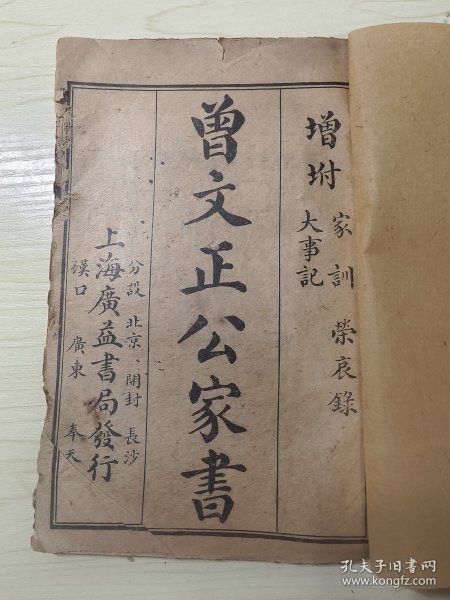 增坿 家訓 榮哀錄
大事記
曾文正公家書
分設 北京 開封 長沙
上海廣益書局發行
漢口 廣東 奉天
孔夫子旧书网
www.kongfz.com